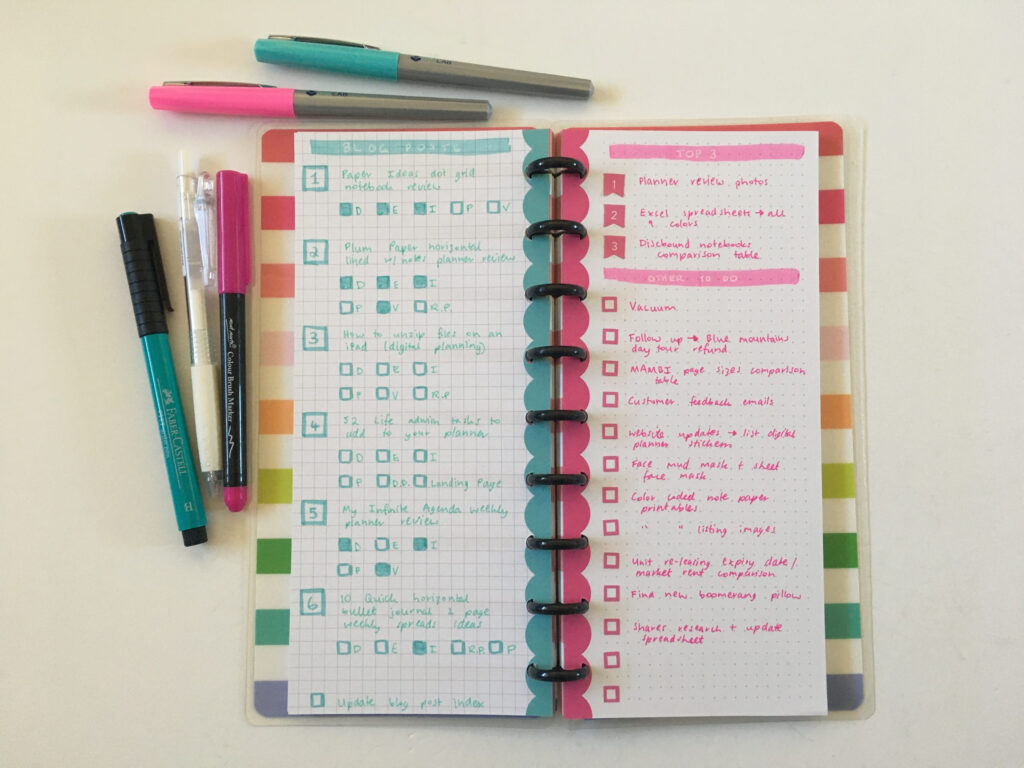 BLOG POSTS
1 Paper Ideas dot grid
notebook review
D E I P V
2 Plum Paper horizontal
lined w/ notes planner review
D E I
P V R.P.
3 How to unzip files on an
iPad (digital planning)
D E I
P V R.P.
4 52 Life admin tasks to
add to your planner
D E I
P D.D. Landing Page
5 My Infinite Agenda weekly
planner review
D E I
P V
6 10 Quick horizontal
bullet journal 2 page
weekly spreads ideas
D E I R.P. P
Update blog post index
TOP 3
1 Planner review photos
2 Excel spreadsheets → all
colors
3 Discbound notebooks
comparison table
OTHER TO DO
Vacuum
Follow up → Blue mountains
day tour refund
MAMBI page sizes comparison
table
Customer feedback emails
Website updates → list digital
planner stickers
Face mud mask + sheet
face mask
Color coded note paper
printables
" " listing images
Unit re-leasing expiry date /
market rent comparison
Find new boomerang pillow
Shares research + update
spreadsheet
LAB
LAB
FABER-CASTELL
Colour Brush Marker